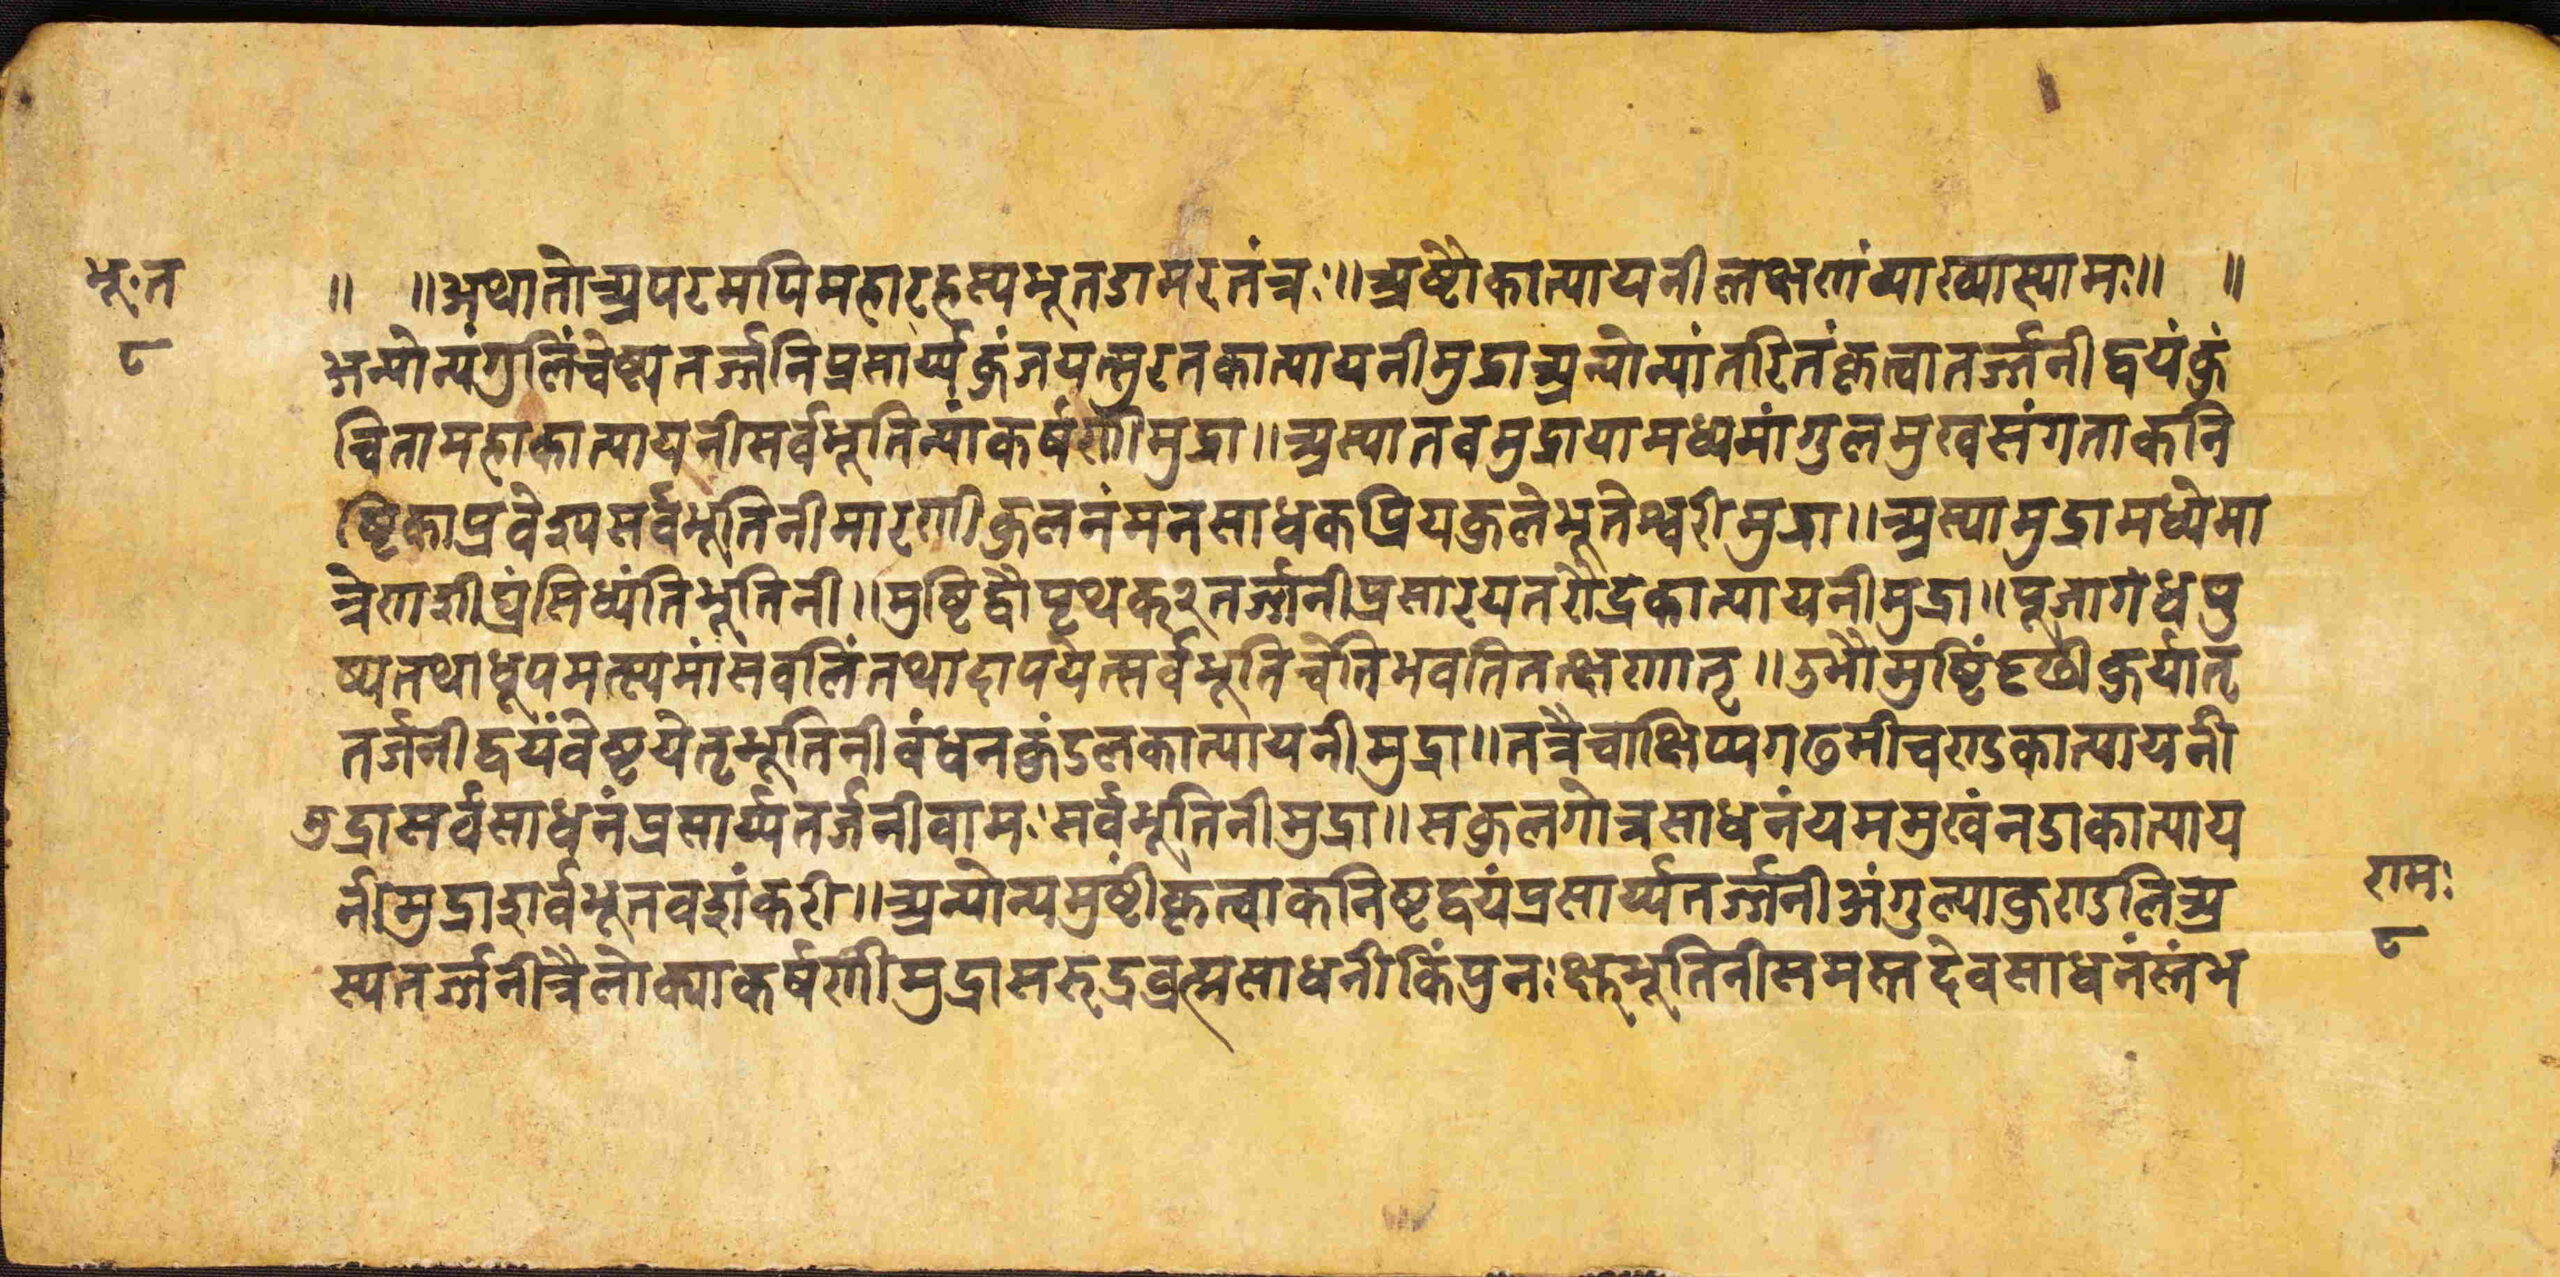 भू॰त
८
॥ ॥अथातोअपरमपिमहारहस्यभूतडामरतंत्रः॥अष्टौकात्यायनीलक्षणंव्याख्यास्यामः॥ ॥
अन्योन्यंगुलिंच्वेष्ट्यतर्ज्जनिप्रसार्य्यकुंजयत्सुरतकात्यायनीमुद्राअन्योन्यांतरितंकृत्वातर्ज्जनीद्वयंकुं
चितामहाकात्यायनीसर्वभूतिन्यांकर्षणीमुद्रा॥अस्यातवमुद्रायामध्यमांगुलमुखसंगताकनि
ष्टिकाप्रवेश्यसर्वभूतिनीमारणीकुलनंमनसाधकप्रियकुलेभूतेश्वरीमुद्रा॥अस्यामुद्रामध्येमा
त्रेणशीघ्रंसिध्यंतिभूतिनी॥मुष्टिद्वौपृथक्२तर्ज्जनीप्रसारयतरौद्रकात्यायनीमुद्रा॥पूजागंधपु
ष्पतथाधूपमत्स्यमांसंवलिंतथादापयेत्सर्वभूतिचेतिभवतितत्क्षणात्॥उभौमुष्टिंदृढीकुर्यात्
तर्जनीद्वयंवेष्टयेत्भूतिनीवंधनकुंडलकात्यायनीमुद्रा॥तत्रैवाक्षिप्यगढमीचण्डकात्यायनी
मुद्रासर्वसाधनंप्रसार्य्यतर्जनीवामःसर्वभूतिनीमुद्रा॥सकुलगोत्रसाधनंयममुखंनडाकात्याय
नीमुद्राशर्वभूतवशंकरी॥अन्योन्यमुष्टींकृत्वाकनिष्टद्वयंप्रसार्य्यतर्ज्जनीअंगुल्याकुण्डलिअ
स्यतर्ज्जनीत्रैलोक्याकर्षणीमुद्रासरुद्रव्रत्मसाधनीकिंपुनःक्षुभूतिनीसमस्तदेवसाधनंस्तंभ
रामः
८